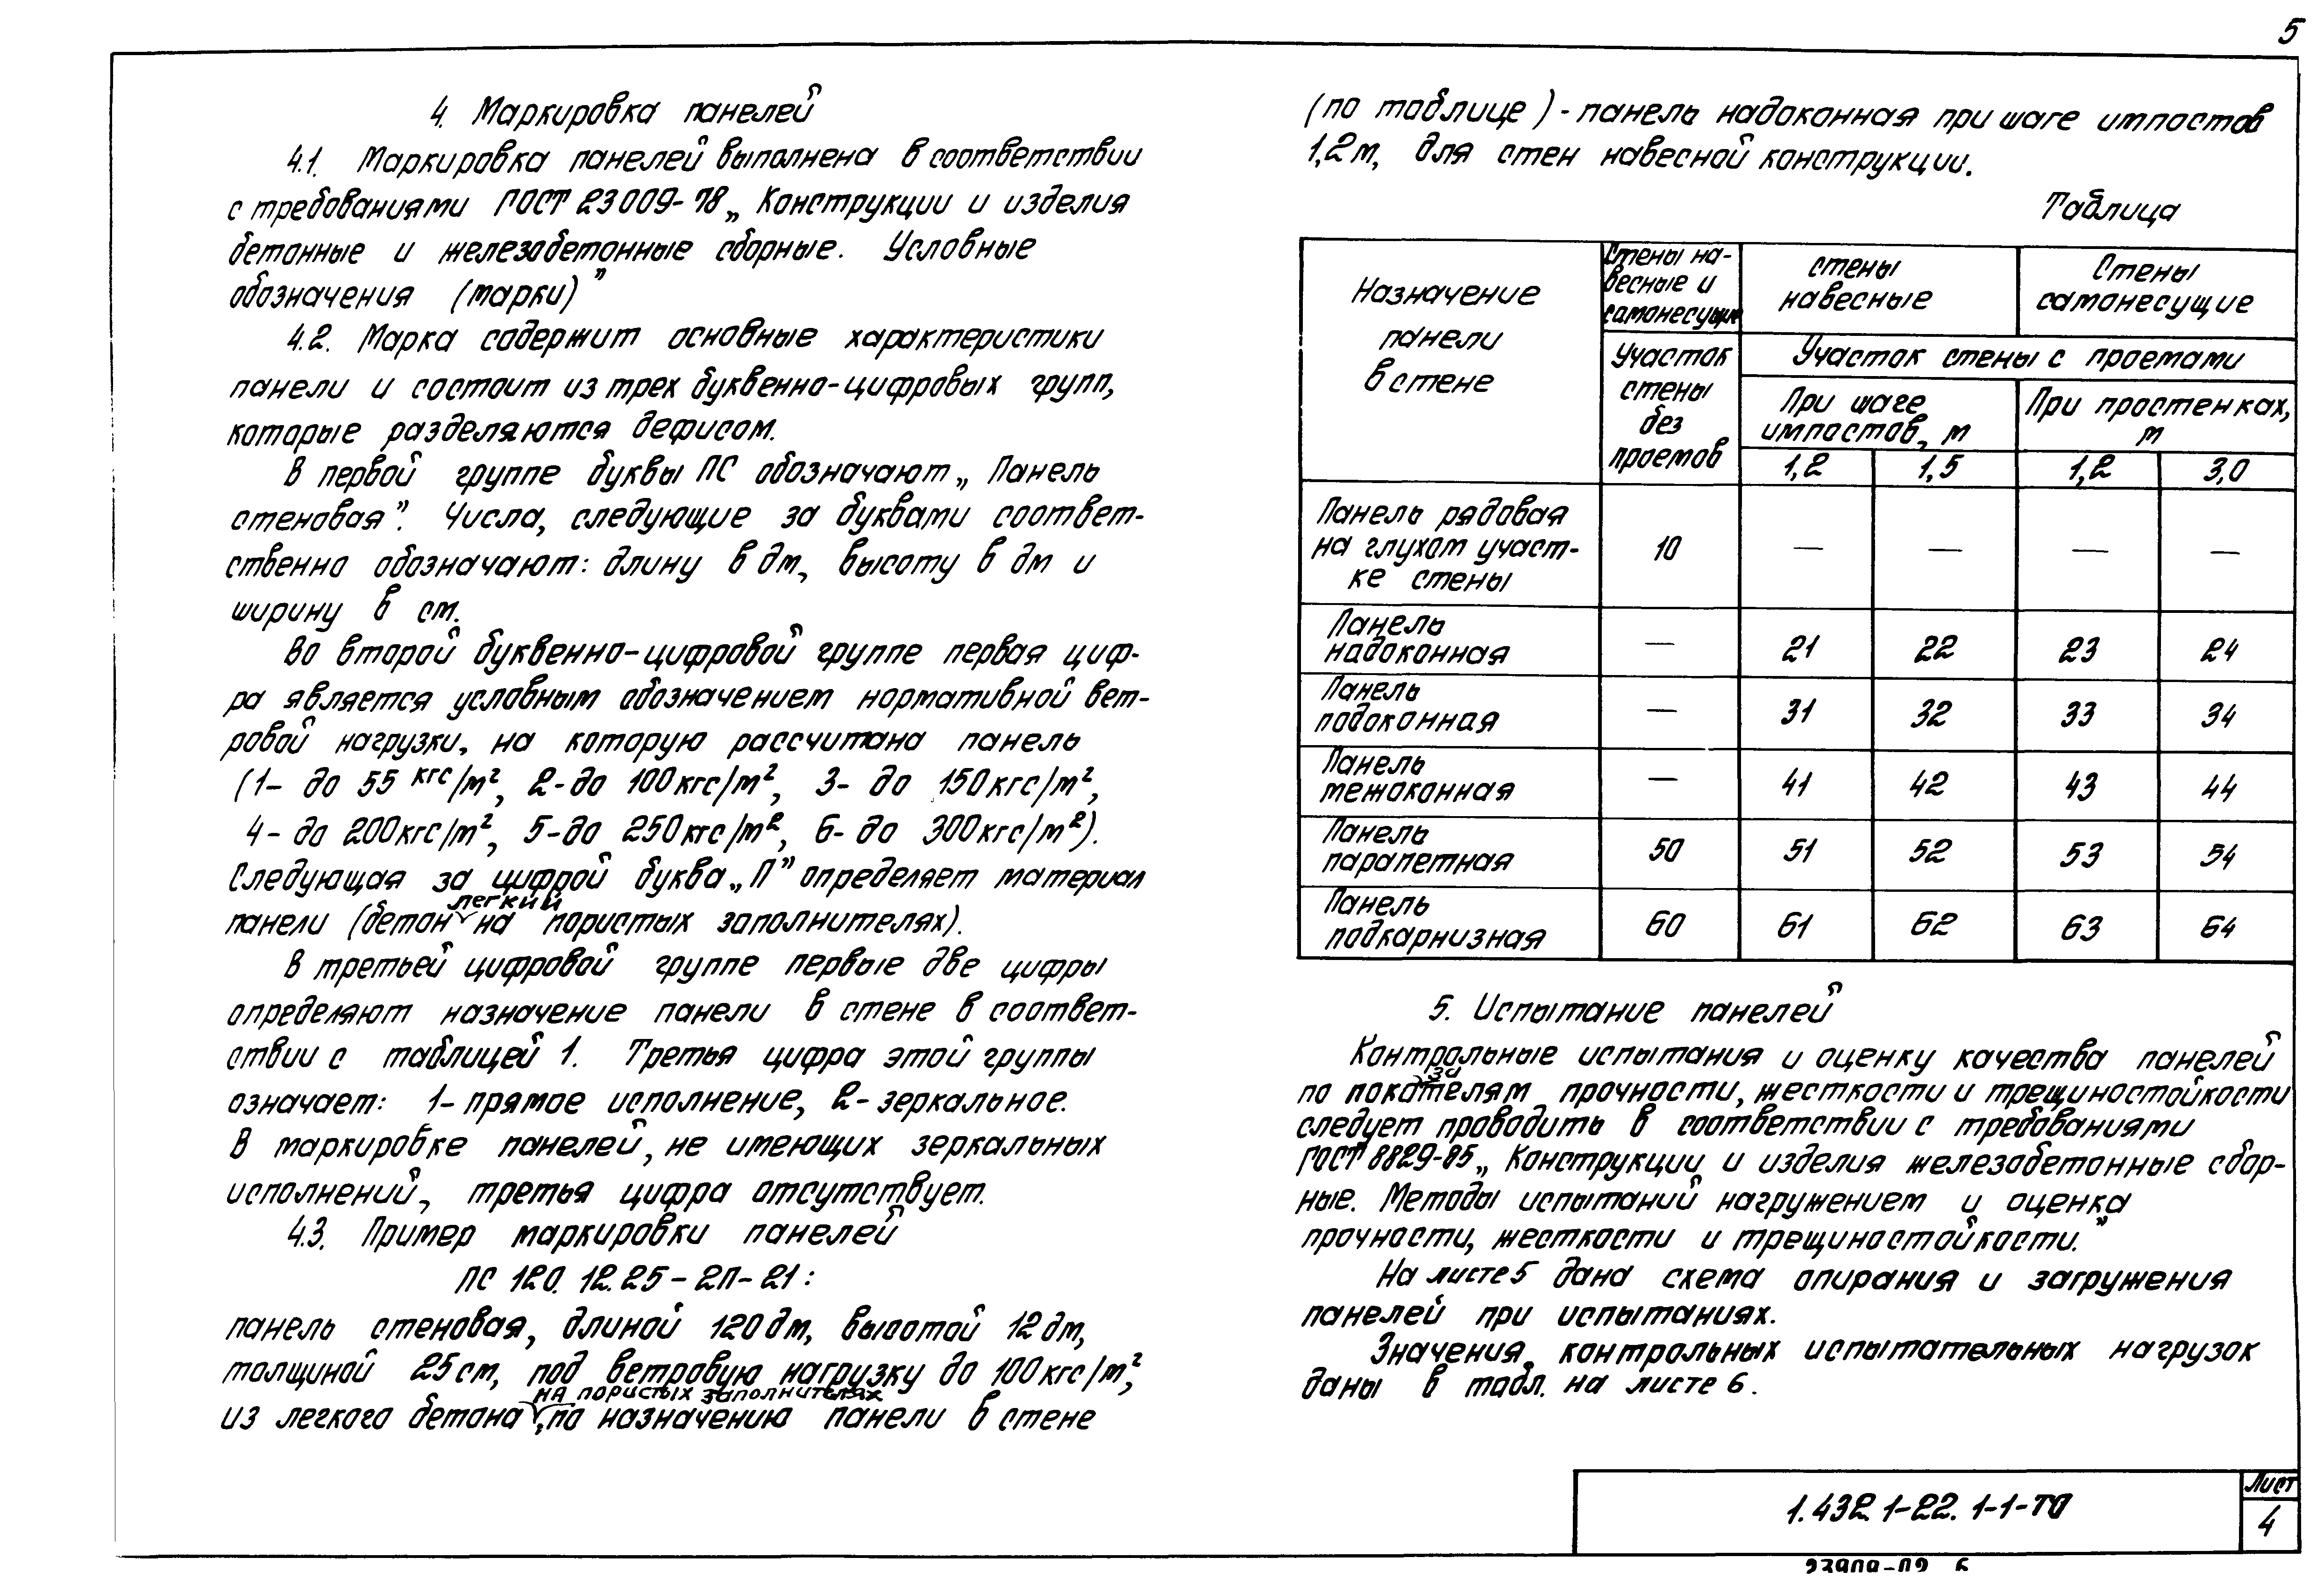 5
4. Маркировка панелей
4.1. Маркировка панелей выполнена в соответствии
с требованиями ГОСТ 23009-78 „Конструкции и изделия
бетонные и железобетонные сборные. Условные
обозначения (марки)”
4.2. Марка содержит основные характеристики
панели и состоит из трех буквенно-цифровых групп,
которые разделяются дефисом.
В первой группе буквы ПС обозначают „Панель
стеновая”. Числа, следующие за буквами соответ-
ственно обозначают: длину в дм, высоту в дм и
ширину в см.
Во второй буквенно-цифровой группе первая циф-
ра является условным обозначением нормативной вет-
ровой нагрузки, на которую рассчитана панель
(1- до 55 кгс/м², 2-до 100 кгс/м², 3- до 150 кгс/м²,
4- до 200 кгс/м², 5-до 250 кгс/м², 6- до 300 кгс/м²).
Следующая за цифрой буква „П” определяет материал
легкий
панели (бетон на пористых заполнителях).
В третьей цифровой группе первые две цифры
определяют назначение панели в стене в соответ-
ствии с таблицей 1. Третья цифра этой группы
означает: 1- прямое исполнение, 2- зеркальное.
В маркировке панелей, не имеющих зеркальных
исполнений, третья цифра отсутствует.
4.3. Пример маркировки панелей
ПС 120.12.25-2П-21:
панель стеновая, длиной 120 дм, высотой 12 дм,
толщиной 25 см, под ветровую нагрузку до 100 кгс/м²,
на пористых заполнителях
из легкого бетона, по назначению панели в стене
(по таблице) - панель надоконная при шаге импостов
1,2 м, для стен навесной конструкции.
Таблица
Назначение
панели
в стене
Стены на-
весные и
самонесущие
Стены
навесные
Стены
самонесущие
Участок
стены
без
проемов
Участок стены с проемами
При шаге
импостов, м
При простенках,
м
1,2 1,5 1,2 3,0
Панель рядовая
на глухом участ-
ке стены
10 — — — —
Панель
надоконная
— 21 22 23 24
Панель
подоконная
— 31 32 33 34
Панель
межоконная
— 41 42 43 44
Панель
парапетная
50 51 52 53 54
Панель
подкарнизная
60 61 62 63 64
5. Испытание панелей
Контрольные испытания и оценку качества панелей
за
по покателям прочности, жесткости и трещиностойкости
следует проводить в соответствии с требованиями
ГОСТ 8829-85 „Конструкции и изделия железобетонные сбор-
ные. Методы испытаний нагружением и оценка
прочности, жесткости и трещиностойкости.”
На листе 5 дана схема опирания и загружения
панелей при испытаниях.
Значения контрольных испытательных нагрузок
даны в табл. на листе 6.
1.432.1-22.1-1-ТО
Лист
4
23909-02 6